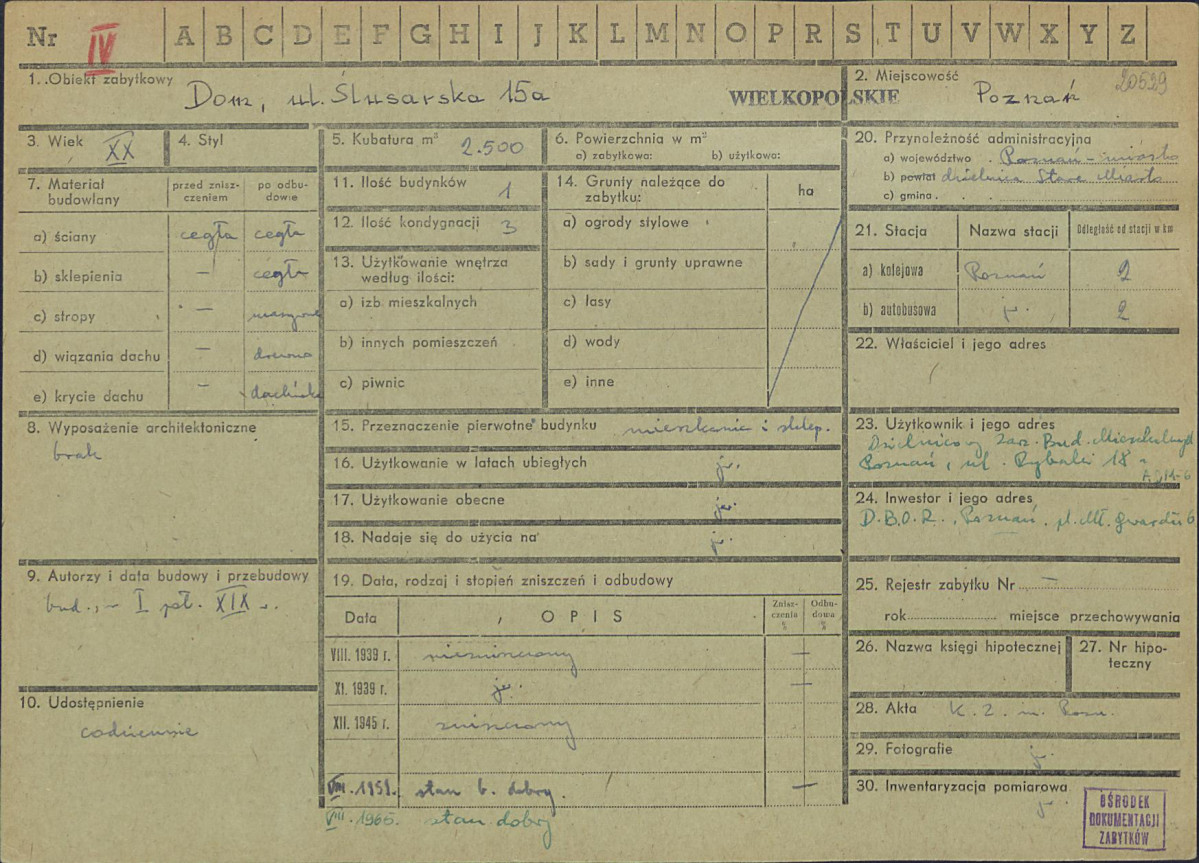 Nr IV A B C D E F G H I J K L M N O P R S T U V W X Y Z
1. Obiekt zabytkowy
Dom, ul. Ślusarska 15a
WIELKOPOLSKIE
2. Miejscowość
Poznań
20529
3. Wiek XX
4. Styl
5. Kubatura m³ 2.500
6. Powierzchnia w m²
a) zabytkowa: b) użytkowa:
7. Materiał budowlany
przed zniszczeniem
po odbudowie
a) ściany cegła cegła
b) sklepienia — cegła
c) stropy —
d) wiązania dachu —
e) krycie dachu — dachówka
8. Wyposażenie architektoniczne
brak
9. Autorzy i data budowy i przebudowy
bud., I poł. XIX w.
10. Udostępnienie
codziennie
11. Ilość budynków 1
12. Ilość kondygnacji 3
13. Użytkowanie wnętrza
według ilości:
a) izb mieszkalnych
b) innych pomieszczeń
c) piwnic
14. Grunty należące do
zabytku:
ha
a) ogrody stylowe
b) sady i grunty uprawne
c) lasy
d) wody
e) inne
15. Przeznaczenie pierwotne budynku mieszkania i sklep.
16. Użytkowanie w latach ubiegłych jw.
17. Użytkowanie obecne jw.
18. Nadaje się do użycia na jw.
19. Data, rodzaj i stopień zniszczeń i odbudowy
Data OPIS Zniszczenia % Odbudowa %
VIII. 1939 r. niezniszczony —
XI. 1939 r. jw. —
XII. 1945 r. zniszczony
VIII. 1959. stan b. dobry. —
VIII. 1965. stan dobry
20. Przynależność administracyjna
a) województwo Poznań - miasto
b) powiat dzielnica Stare Miasto
c) gmina
21. Stacja Nazwa stacji Odległość od stacji w km
a) kolejowa Poznań 2
b) autobusowa j. 2
22. Właściciel i jego adres
23. Użytkownik i jego adres
Dzielnicowy Zarz. Bud. Mieszkalnych
Poznań, ul. Rybaki 18
ADM-6
24. Inwestor i jego adres
D.B.O.R., Poznań, pl. Mł. Gwardii 6
25. Rejestr zabytku Nr —
rok miejsce przechowywania
26. Nazwa księgi hipotecznej
27. Nr hipoteczny
28. Akta K. Z. m. Pozn.
29. Fotografie j.
30. Inwentaryzacja pomiarowa
j.
OŚRODEK
DOKUMENTACJI
ZABYTKÓW